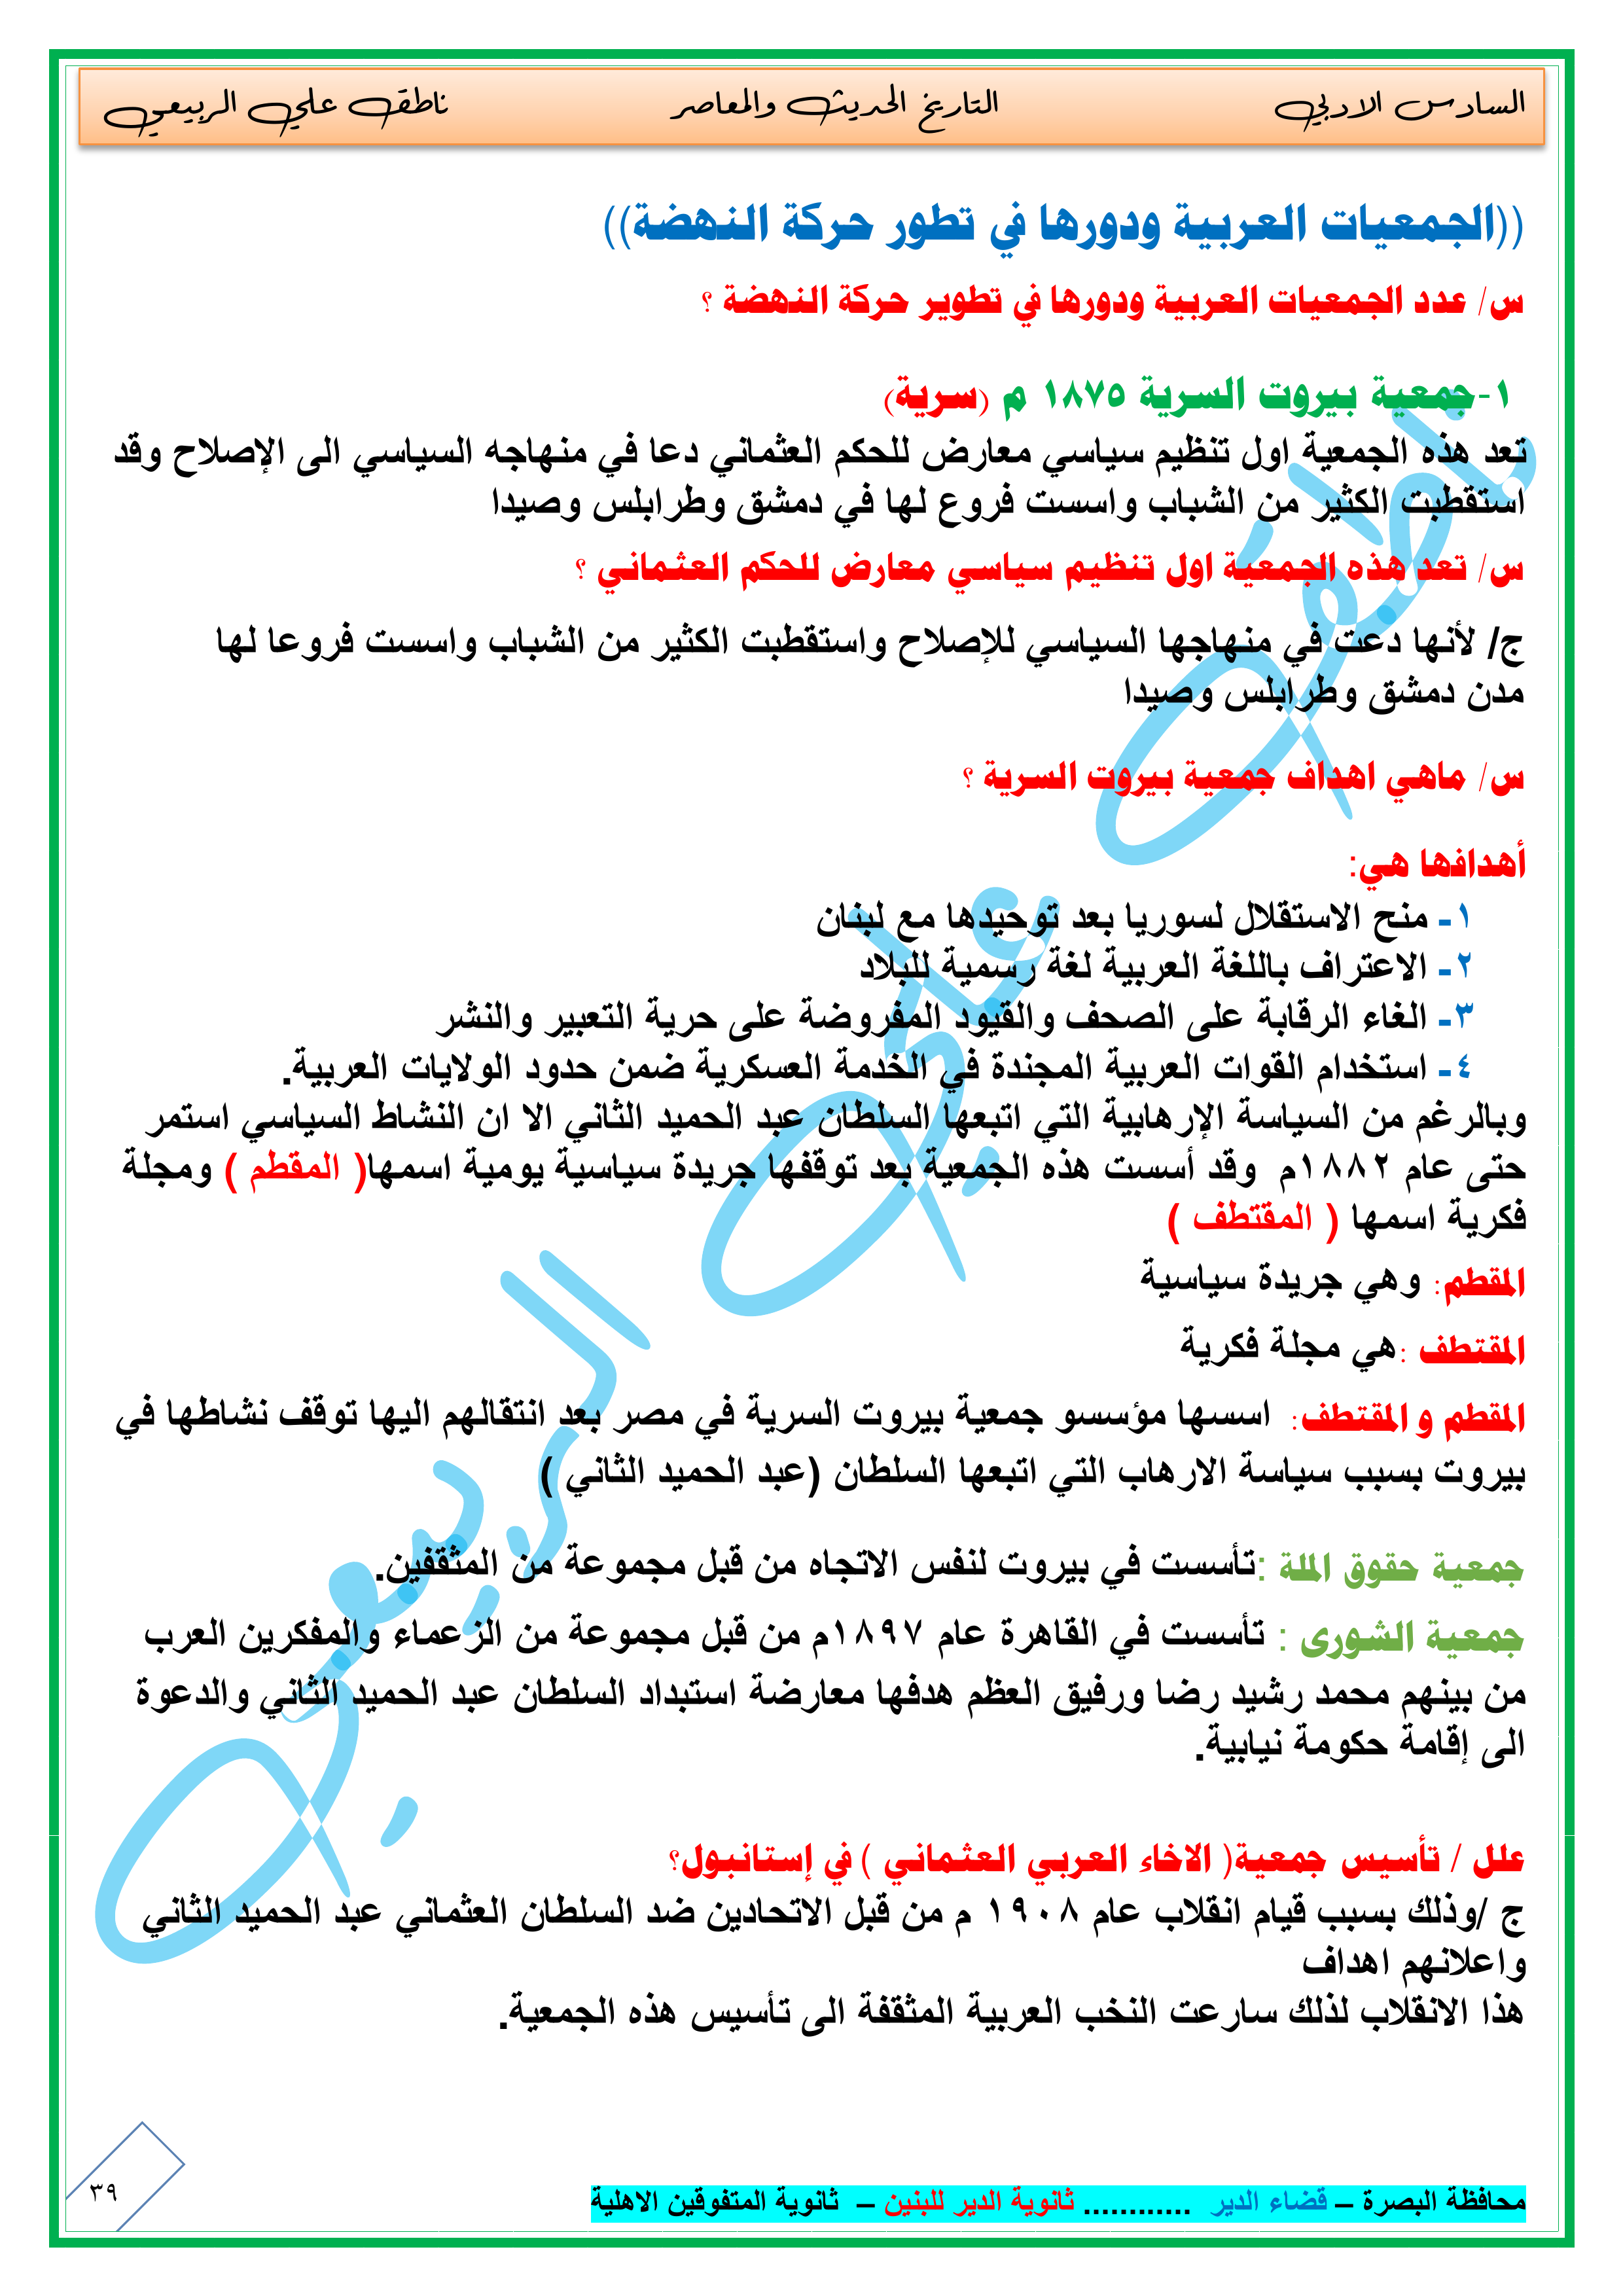 السادس الادبي التاريخ الحديث والمعاصر ناطق علي الربيعي
((الجمعيات العربية ودورها في تطور حركة النهضة))
س/ عدد الجمعيات العربية ودورها في تطوير حركة النهضة ؟
١-جمعية بيروت السرية ١٨٧٥ م (سرية)
تعد هذه الجمعية اول تنظيم سياسي معارض للحكم العثماني دعا في منهاجه السياسي الى الإصلاح وقد
استقطبت الكثير من الشباب واسست فروع لها في دمشق وطرابلس وصيدا
س/ تعد هذه الجمعية اول تنظيم سياسي معارض للحكم العثماني ؟
ج/ لأنها دعت في منهاجها السياسي للإصلاح واستقطبت الكثير من الشباب واسست فروعا لها
مدن دمشق وطرابلس وصيدا
س/ ماهي اهداف جمعية بيروت السرية ؟
أهدافها هي:
١- منح الاستقلال لسوريا بعد توحيدها مع لبنان
٢- الاعتراف باللغة العربية لغة رسمية للبلاد
٣- الغاء الرقابة على الصحف والقيود المفروضة على حرية التعبير والنشر
٤- استخدام القوات العربية المجندة في الخدمة العسكرية ضمن حدود الولايات العربية.
وبالرغم من السياسة الإرهابية التي اتبعها السلطان عبد الحميد الثاني الا ان النشاط السياسي استمر
حتى عام ١٨٨٢م وقد أسست هذه الجمعية بعد توقفها جريدة سياسية يومية اسمها( المقطم ) ومجلة
فكرية اسمها ( المقتطف )
المقطم: وهي جريدة سياسية
المقتطف :هي مجلة فكرية
المقطم و المقتطف: اسسها مؤسسو جمعية بيروت السرية في مصر بعد انتقالهم اليها توقف نشاطها في
بيروت بسبب سياسة الارهاب التي اتبعها السلطان (عبد الحميد الثاني )
جمعية حقوق الملة :تأسست في بيروت لنفس الاتجاه من قبل مجموعة من المثقفين.
جمعية الشورى : تأسست في القاهرة عام ١٨٩٧م من قبل مجموعة من الزعماء والمفكرين العرب
من بينهم محمد رشيد رضا ورفيق العظم هدفها معارضة استبداد السلطان عبد الحميد الثاني والدعوة
الى إقامة حكومة نيابية.
علل / تأسيس جمعية( الاخاء العربي العثماني ) في إستانبول؟
ج /وذلك بسبب قيام انقلاب عام ١٩٠٨ م من قبل الاتحادين ضد السلطان العثماني عبد الحميد الثاني
واعلانهم اهداف
هذا الانقلاب لذلك سارعت النخب العربية المثقفة الى تأسيس هذه الجمعية.
ناطق علي الربيعي
٣٩
محافظة البصرة – قضاء الدير ............ ثانوية الدير للبنين – ثانوية المتفوقين الاهلية